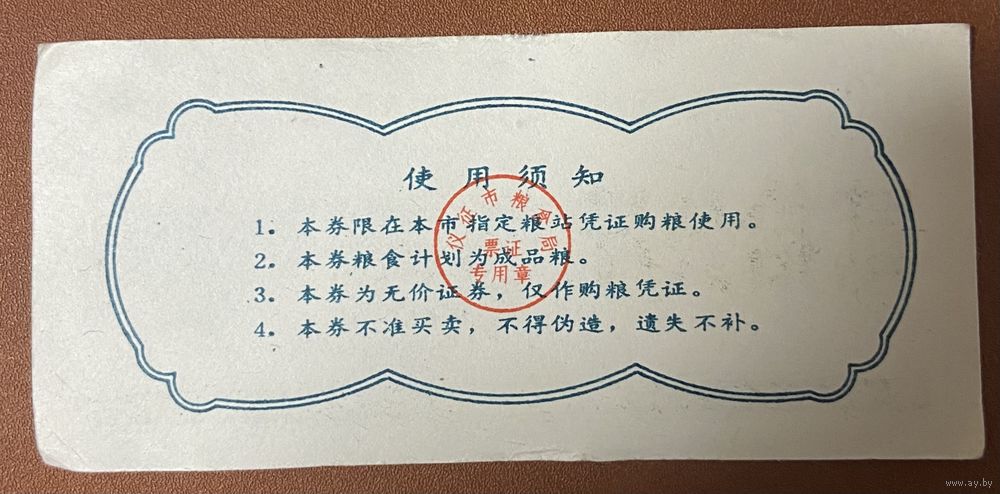 使用须知
1。本券限在本市指定粮站凭证购粮使用。
2。本券粮食计划为成品粮。
3。本券为无价证券，仅作购粮凭证。
4。本券不准买卖，不得伪造，遗失不补。
仪征市粮食局
票证
专用章
www.ay.by